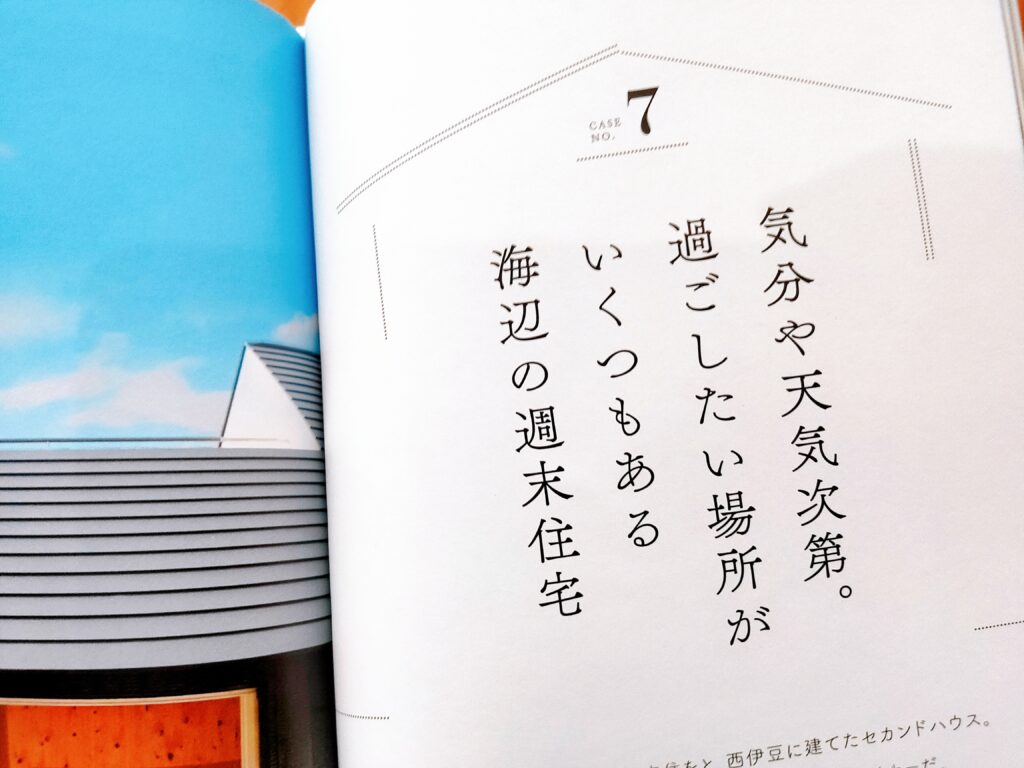 CASE
NO. 7
気分や天気次第。
過ごしたい場所が
いくつもある
海辺の週末住宅
西伊豆に建てたセカンドハウス。